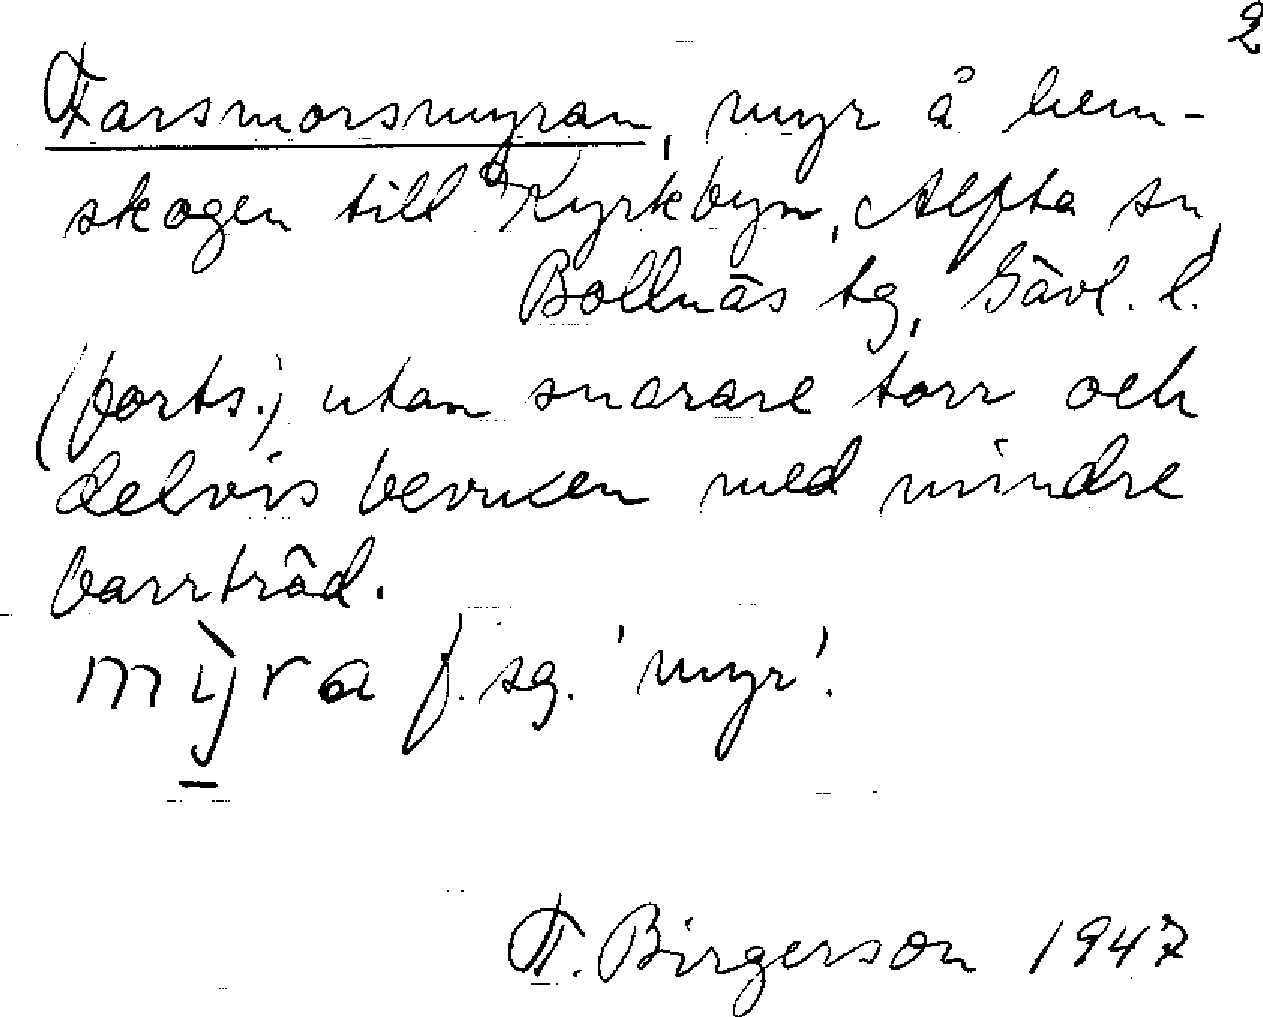 2
Farsmorsmyran, myr å hem-
skogen till Kyrkbyn, Alfta sn,
Bollnäs tg, Gävl. l.
(forts.) utan snarare torr och
delvis bevuxen med mindre
barrträd.
mỳra f. sg. 'myr'.
T. Birgerson 1947